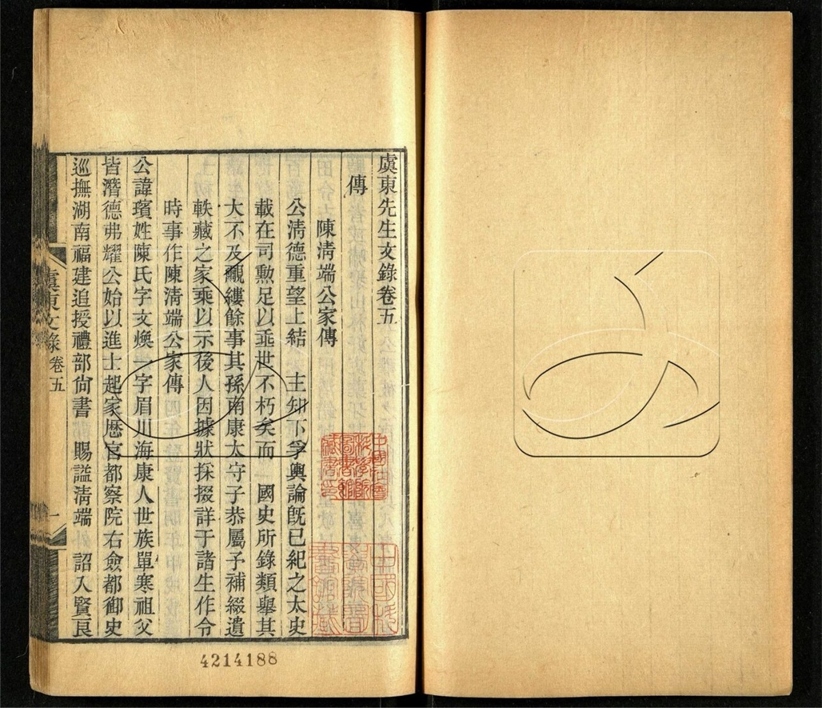 虞東先生文錄卷五
傳
陳淸端公家傳
公淸德重望上結　主知下孚輿論旣已紀之太史
載在司勲足以乖世不朽矣而　國史所錄類舉其
大不及覼縷餘事其孫南康太守子恭屬予補綴遺
軼藏之家乘以示後人因據狀採掇詳于諸生作令
時事作陳淸端公家傳
公諱璸姓陳氏字文煥一字眉川海康人世族單寒祖父
皆潛德弗耀公始以進士起家歷官都察院右僉都御史
巡撫湖南福建追授禮部尙書　賜謚淸端　詔入賢良
虞東文錄 卷五
一
4214188